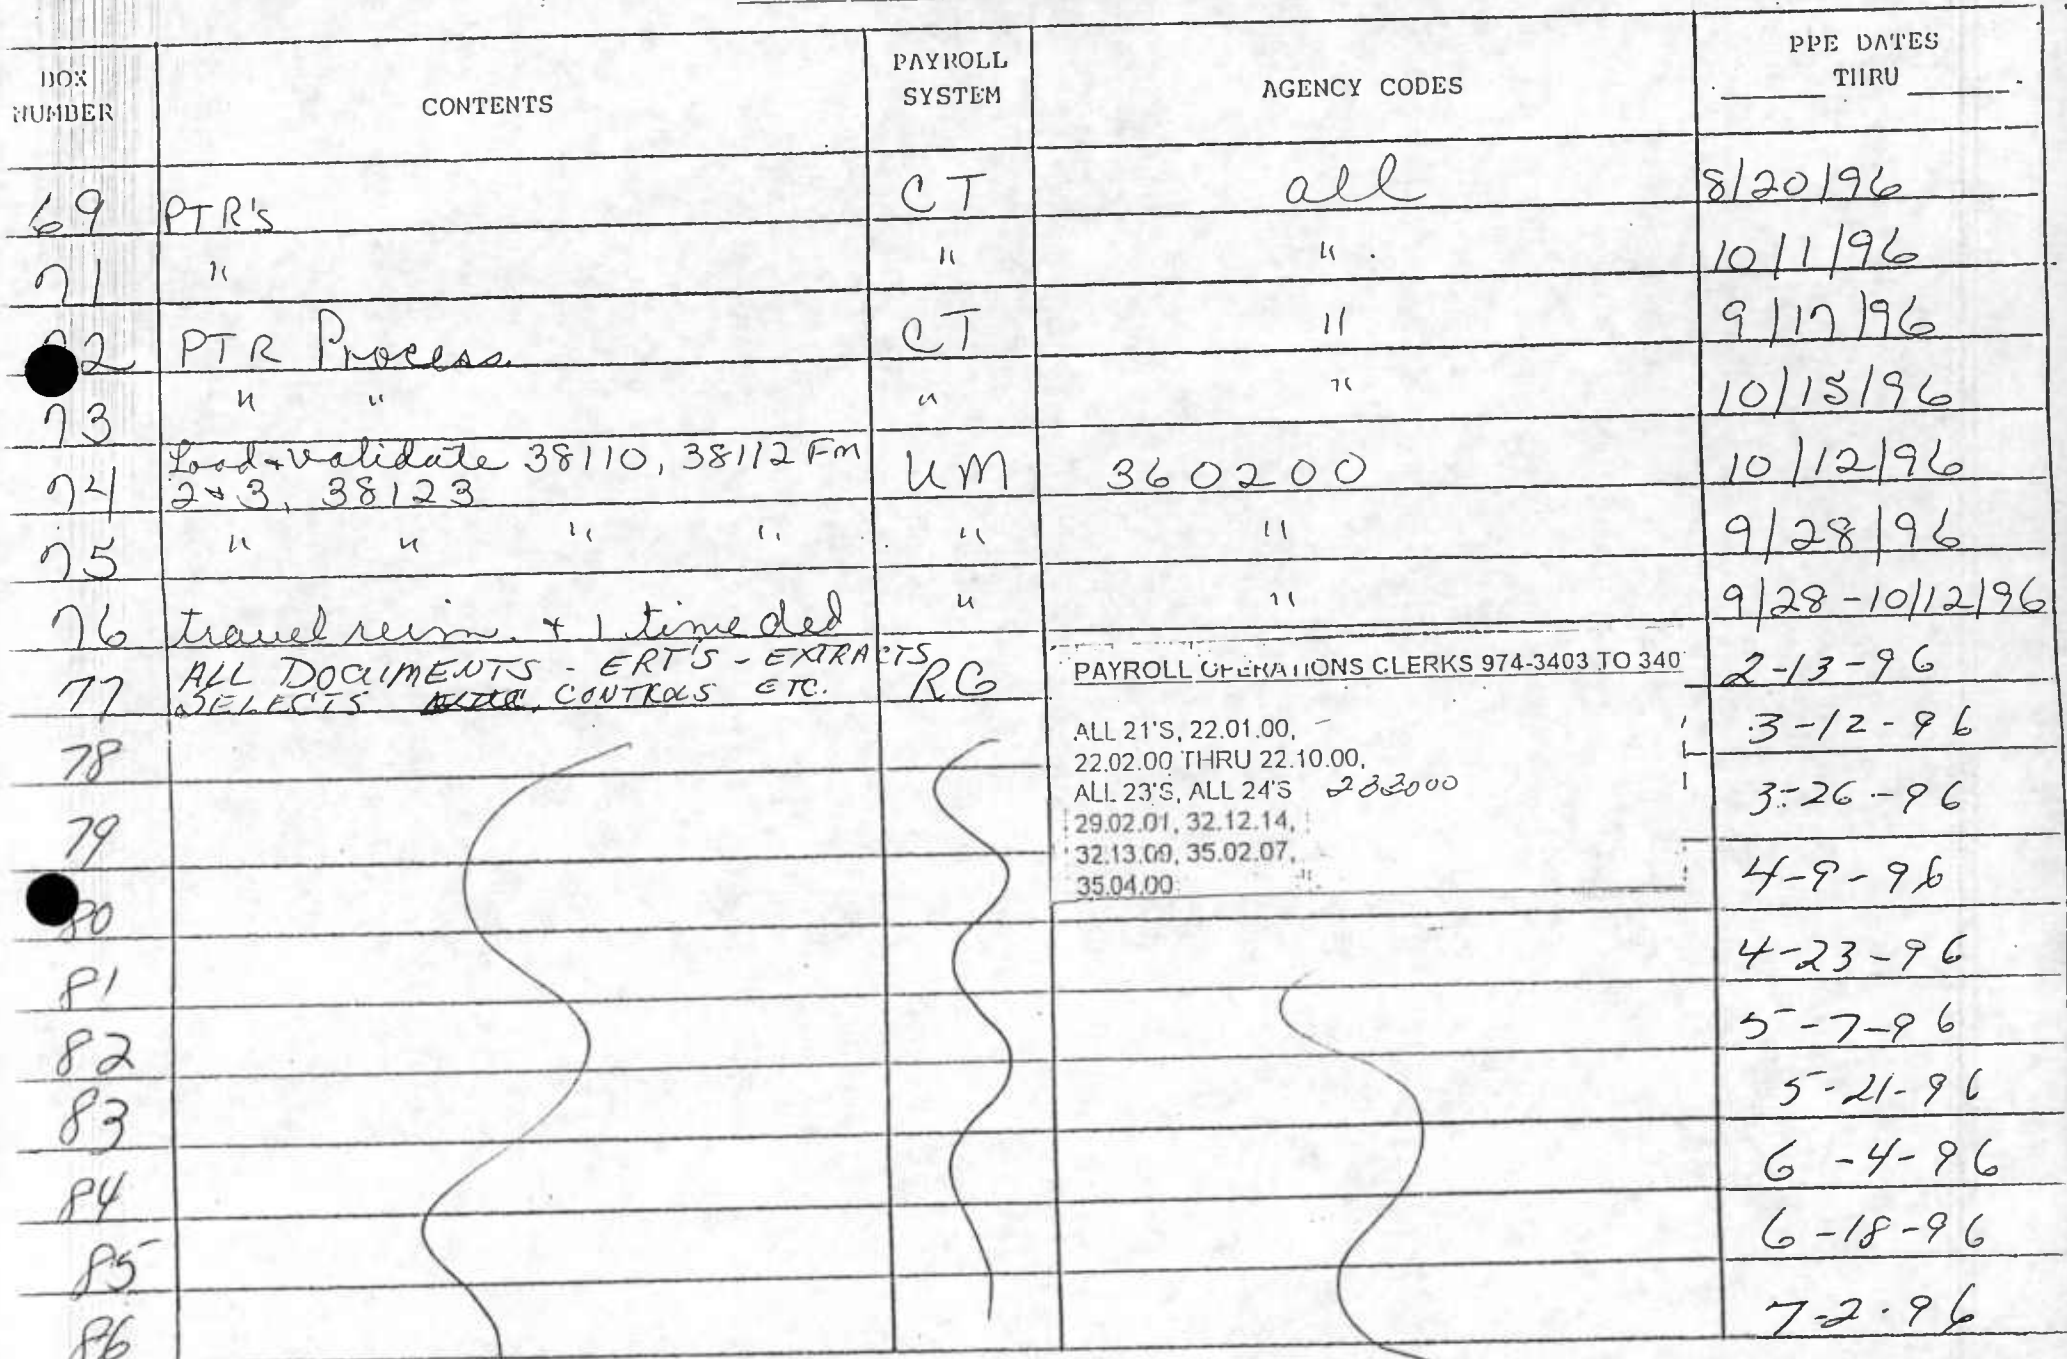 BOX NUMBER CONTENTS PAYROLL SYSTEM AGENCY CODES PPE DATES THRU
69 PTR's CT all 8/20/96
71 " " " 10/1/96
72 PTR Process CT " 9/17/96
73 " " " " 10/15/96
74 Load + validate 38110, 38112 Fm UM 360200 10/12/96
2 + 3, 38123
75 " " " " " " 9/28/96
76 travel reim. + 1 time ded " " 9/28-10/12/96
77 ALL DOCUMENTS - ERT'S - EXTRACTS RG 2-13-96
SELECTS CONTROLS ETC.
PAYROLL OPERATIONS CLERKS 974-3403 TO 340
ALL 21'S, 22.01.00,
22.02.00 THRU 22.10.00,
ALL 23'S, ALL 24'S 232000
29.02.01, 32.12.14,
32.13.09, 35.02.07,
35.04.00
78 3-12-96
79 3-26-96
80 4-9-96
81 4-23-96
82 5-7-96
83 5-21-96
84 6-4-96
85 6-18-96
86 7-2-96